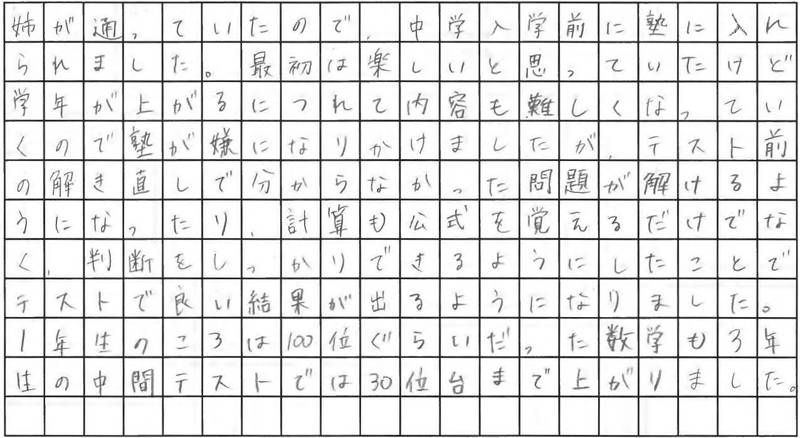 姉が通っていたので、中学入学前に塾に入れ
られました。最初は楽しいと思っていたけど
学年が上がるにつれて内容も難しくなってい
くので塾が嫌になりかけましたが、テスト前
の解き直しで分からなかった問題が解けるよ
うになったり、計算も公式を覚えるだけでな
く、判断をしっかりできるようにしたことで
テストで良い結果が出るようになりました。
1年生のころは100位ぐらいだった数学も3年
生の中間テストでは30位台まで上がりました。